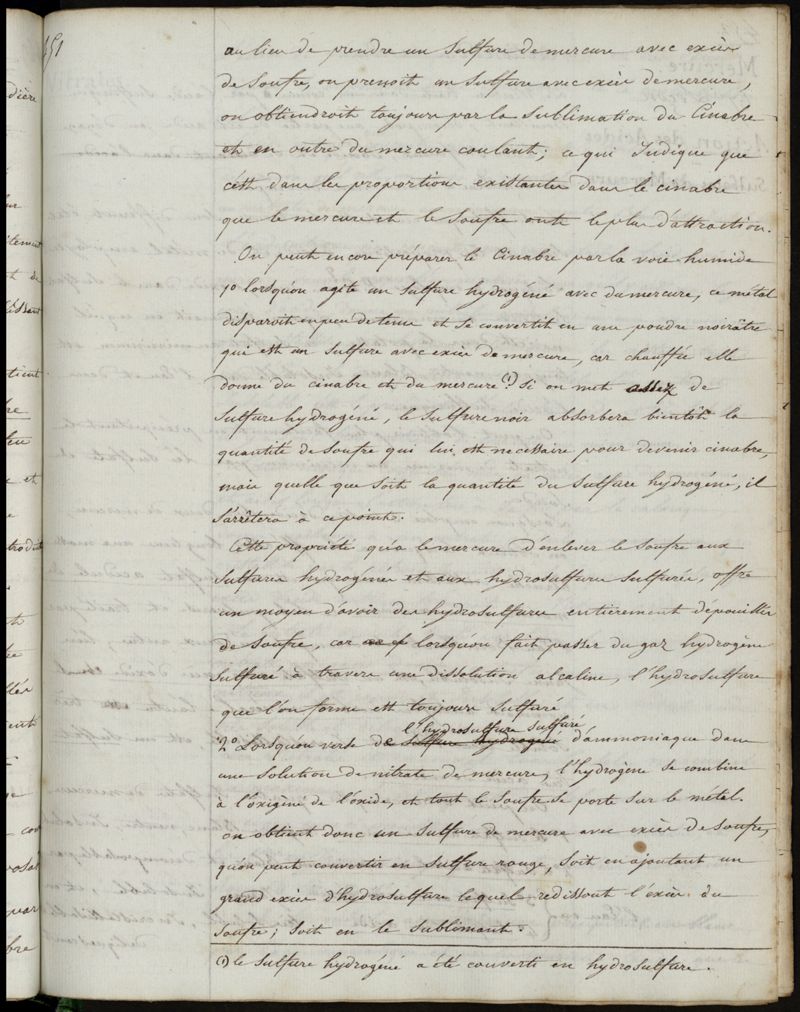 451
au lieu de prendre un Sulfure de mercure avec excès
de Soufre, on prenoit un Sulfure avec excès de mercure,
on obtiendroit toujours par la Sublimation du Cinabre
et en outre du mercure coulant; ce qui Indique que
c'est dans les proportions existantes dans le cinabre
que le mercure et le Soufre ont le plus d'attraction.
On peut encore préparer le Cinabre par la voie humide
1o lorsqu'on agite un Sulfure hydrogéné avec du mercure, ce métal
disparoit en peu de tems et se convertit en une poudre noirâtre
qui est un Sulfure avec excès de mercure, car chauffée elle
donne du cinabre et du mercure (1). Si on met assez de
Sulfure hydrogéné, le Sulfure noir absorbera bientôt la
quantité de Soufre qui lui est necessaire pour devenir cinabre,
mais quelle que soit la quantité du Sulfure hydrogéné, il
s'arrêtera à ce point.
Cette propriété qu'a le mercure d'enlever le Soufre aux
Sulfures hydrogénés et aux hydrosulfures Sulfurés, offre
un moyen d'avoir des hydrosulfures entierement dépouillés
de Soufre, car lorsqu'on fait passer du gaz hydrogène
Sulfuré à travers une dissolution alcaline, l'hydrosulfure
que l'on forme est toujours Sulfuré
l'hydrosulfure sulfuré
2o Lorsqu'on verse de Sulfure hydrogéné d'ammoniaque dans
une Solution de nitrate de mercure, l'hydrogène se combine
à l'oxigène de l'oxide, et tout le Soufre Se porte sur le métal.
on obtient donc un Sulfure de mercure avec excès de Soufre,
qu'on peut convertir en Sulfure rouge, Soit en ajoutant un
grand excès d'hydrosulfure lequel redissout l'excès du
Soufre; Soit en le Sublimant.
(1) le Sulfure hydrogéné a été converti en hydrosulfure.